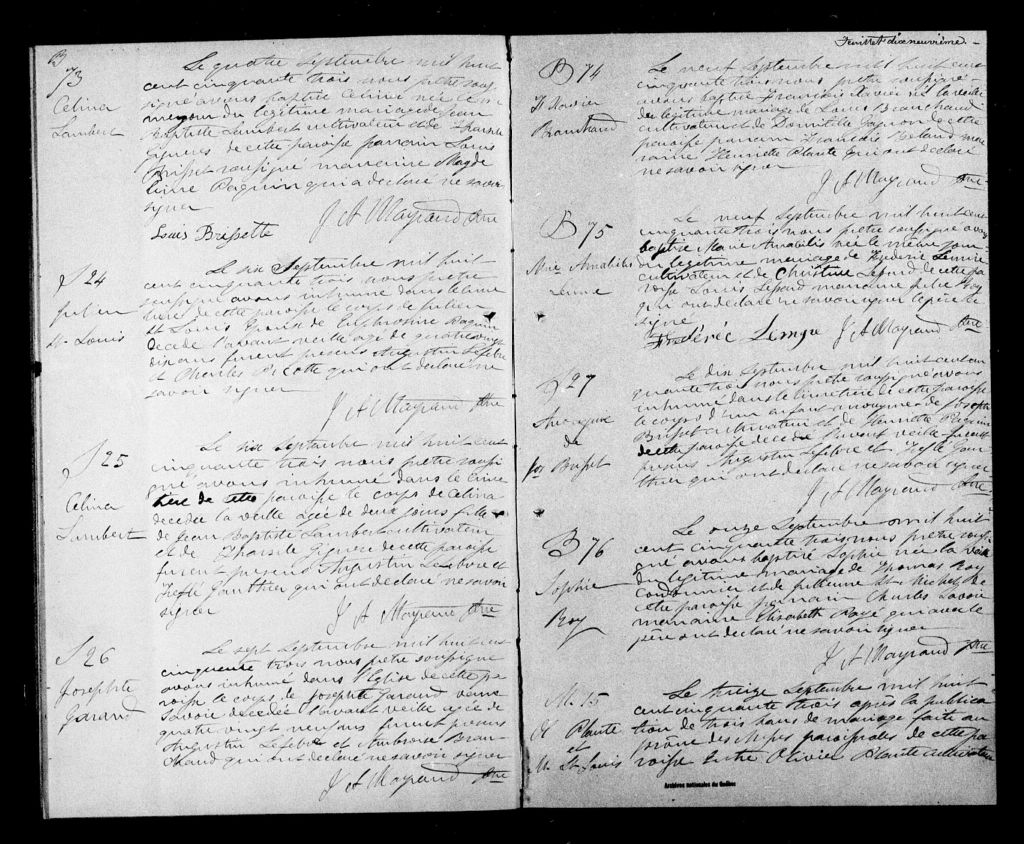 B
73
Celina
Lambert
Le quatre Septembre mil huit
cent cinquante trois nous prêtre sous
signé avons baptisé Celina née le
du légitime mariage de Jean
Baptiste Lambert cultivateur et de Tharsile
de cette paroisse parrain Louis
Brisset soussigné marraine Magde
leine Paquin qui a déclaré ne savoir
signer
J A Mayrand Ptre
Louis Brissette
S 24
Julien
St Louis
Le six Septembre mil huit
cent cinquante trois nous prêtre
soussigné avons inhumé dans le cime
tière de cette paroisse le corps de Julien
St Louis Paquin
décédé l'avant veille agé de quatre vingt
dix ans furent présents Augustin Lefebre
et Charles qui ont déclaré ne
savoir signer
J A Mayrand Ptre
S 25
Celina
Lambert
Le six Septembre mil huit cent
cinquante trois nous prêtre soussi
gné avons inhumé dans le cime
tière de cette paroisse le corps de Celina
décédée la veille agée de deux jours fille
de Jean Baptiste Lambert cultivateur
et de Tharsile de cette paroisse
furent présens Augustin Lefebvre et
Gauthier qui ont déclaré ne savoir
signer
J A Mayrand Ptre
S 26
Josephte
Garand
Le sept Septembre mil huit cent
cinquante trois nous prêtre soussigné
avons inhumé dans l'Eglise de cette pa
roisse le corps de Josephte Garand veuve
Savoie décédée l'avant veille agée de
quatre vingt neuf ans furent présens
Augustin Lefebre et Ambroise Beau
chaud qui ont déclaré ne savoir signer
J A Mayrand Ptre
Feuillet dix neuvième
B 74
F Xavier
Beauchaud
Le neuf Septembre mil huit cent
cinquante trois nous prêtre soussigné
avons baptisé François Xavier né la veille
du légitime mariage de Louis Beauchaud
cultivateur et de Domitille Gagnon de cette
paroisse parrain François mar
raine Henriette Plante qui ont déclaré
ne savoir signer
J A Mayrand Ptre
B 75
Mie Amabilis
Lemire
Le neuf Septembre mil huit cent
cinquante trois nous prêtre soussigné avons
baptisé Marie Amabilis née le même jour
du légitime mariage de Fréderic Lemire
cultivateur et de Christine Lesard de cette pa
roisse Louis Lesard marraine Julie Roy
qui ont déclaré ne savoir signer le père a
signé
Frédéréc Lemyre J A Mayrand Ptre
S 27
Anonyme
de
Jos Brisset
Le dix Septembre mil huit cent cin
quante trois nous prêtre soussigné avons
inhumé dans le cimetière de cette paroisse
le corps d'un enfant anonyme de Joseph
Brisset cultivateur et de Henriette
de cette paroisse décédé l'avant veille furent
présens Augustin Lefebre et Gau
thier qui ont déclaré ne savoir signer
J A Mayrand Ptre
B 76
Sophie
Roy
Le onze Septembre mil huit
cent cinquante trois nous prêtre soussi
gné avons baptisé Sophie née la veille
du légitime mariage de Thomas Roy
cordonnier et de St Michel de
cette paroisse parrain Charles Savoie
marraine Elisabeth qui avec le
père ont déclaré ne savoir signer
J A Mayrand Ptre
M. 15
O Plante
et
M. St Louis
Le treize Septembre mil huit
cent cinquante trois après la publica
tion de trois bans de mariage faite au
prône des Messes paroissiales de cette pa
roisse Entre Olivier Plante cultivateur
Archives nationales du Québec